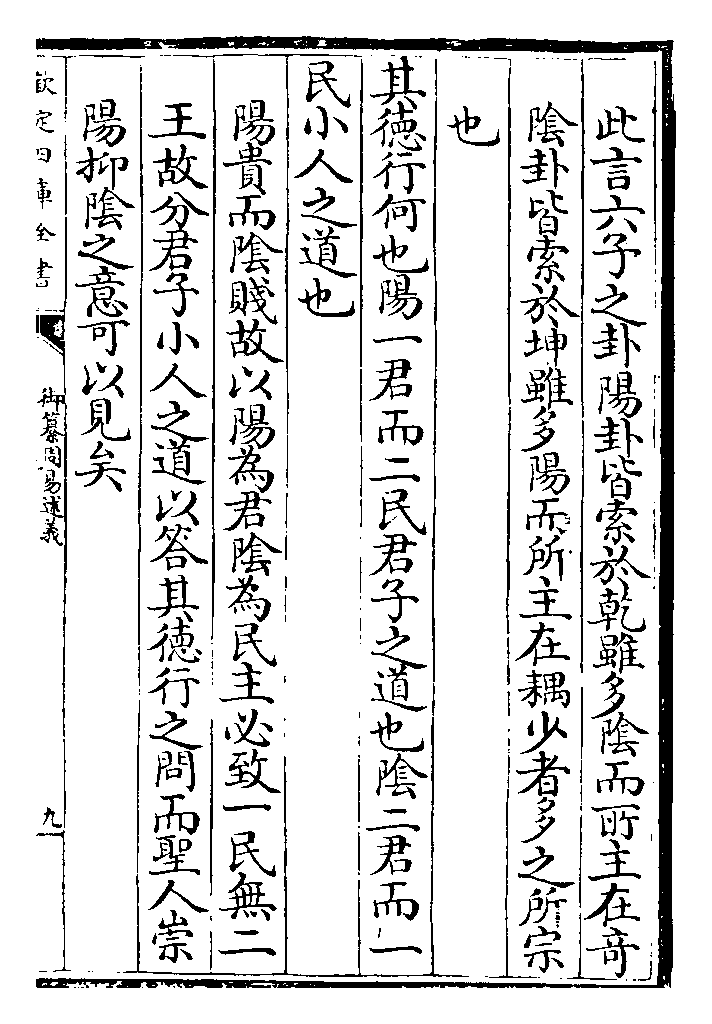 此言六子之卦陽卦皆索於乾雖多陰而所主在奇
陰卦皆索於坤雖多陽而所主在耦少者多之所宗
也
其徳行何也陽一君而二民君子之道也陰二君而一
民小人之道也
陽貴而陰賤故以陽為君陰為民主必致一民無二
王故分君子小人之道以答其徳行之問而聖人崇
陽抑陰之意可以見矣
欽定四庫全書
御纂周易述義
九